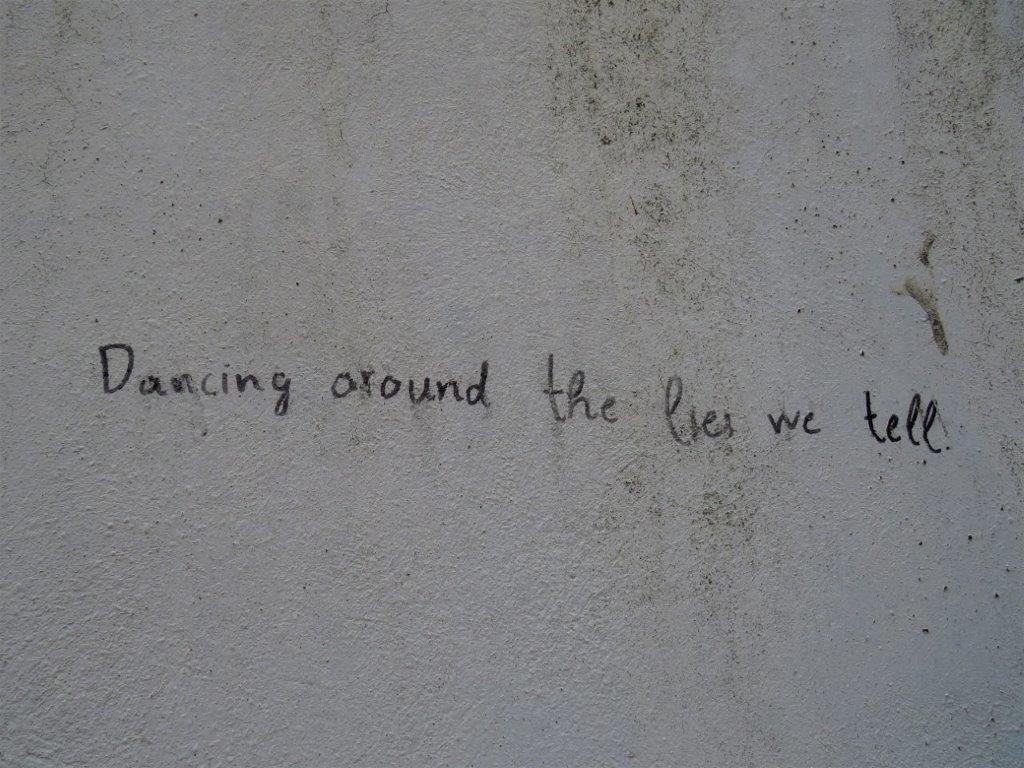 Dancing around the lies we tell.